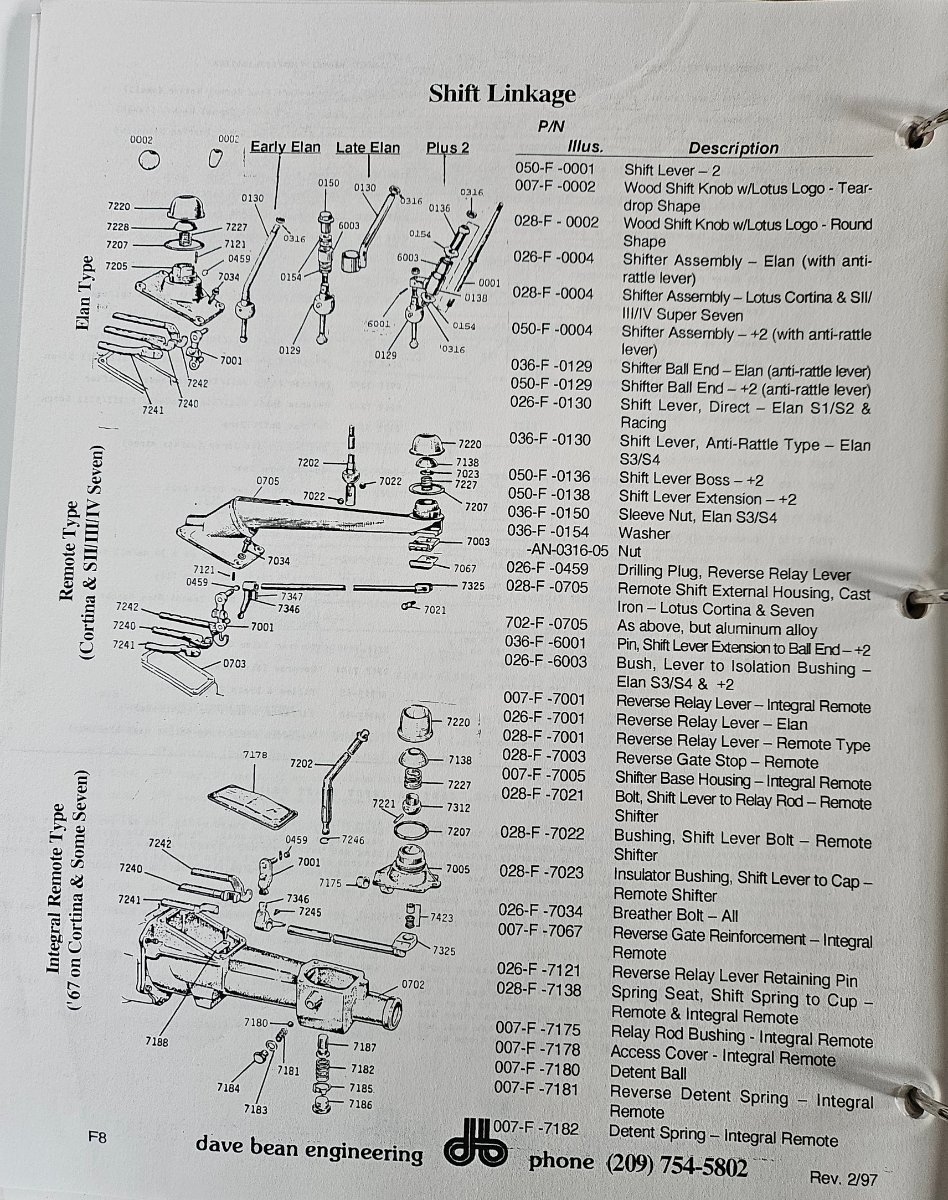 Shift Linkage
P/N
Illus. Description
050-F -0001 Shift Lever – 2
007-F -0002 Wood Shift Knob w/Lotus Logo - Tear-
drop Shape
028-F - 0002 Wood Shift Knob w/Lotus Logo - Round
Shape
026-F -0004 Shifter Assembly – Elan (with anti-
rattle lever)
028-F -0004 Shifter Assembly – Lotus Cortina & SII/
III/IV Super Seven
050-F -0004 Shifter Assembly – +2 (with anti-rattle
lever)
036-F -0129 Shifter Ball End – Elan (anti-rattle lever)
050-F -0129 Shifter Ball End – +2 (anti-rattle lever)
026-F -0130 Shift Lever, Direct – Elan S1/S2 &
Racing
036-F -0130 Shift Lever, Anti-Rattle Type – Elan
S3/S4
050-F -0136 Shift Lever Boss – +2
050-F -0138 Shift Lever Extension – +2
036-F -0150 Sleeve Nut, Elan S3/S4
036-F -0154 Washer
-AN-0316-05 Nut
026-F -0459 Drilling Plug, Reverse Relay Lever
028-F -0705 Remote Shift External Housing, Cast
Iron – Lotus Cortina & Seven
702-F -0705 As above, but aluminum alloy
036-F -6001 Pin, Shift Lever Extension to Ball End – +2
026-F -6003 Bush, Lever to Isolation Bushing –
Elan S3/S4 & +2
007-F -7001 Reverse Relay Lever – Integral Remote
026-F -7001 Reverse Relay Lever – Elan
028-F -7001 Reverse Relay Lever – Remote Type
028-F -7003 Reverse Gate Stop – Remote
007-F -7005 Shifter Base Housing – Integral Remote
028-F -7021 Bolt, Shift Lever to Relay Rod – Remote
Shifter
028-F -7022 Bushing, Shift Lever Bolt – Remote
Shifter
028-F -7023 Insulator Bushing, Shift Lever to Cap –
Remote Shifter
026-F -7034 Breather Bolt – All
007-F -7067 Reverse Gate Reinforcement – Integral
Remote
026-F -7121 Reverse Relay Lever Retaining Pin
028-F -7138 Spring Seat, Shift Spring to Cup –
Remote & Integral Remote
007-F -7175 Relay Rod Bushing - Integral Remote
007-F -7178 Access Cover - Integral Remote
007-F -7180 Detent Ball
007-F -7181 Reverse Detent Spring – Integral
Remote
007-F -7182 Detent Spring – Integral Remote
Elan Type
0002
0002
Early Elan
Late Elan
Plus 2
7220
7228
7227
7207
7121
0459
7205
7034
7001
7242
7240
7241
0130
0316
0150
6003
0154
0129
0130
0316
0136
0316
0154
6003
0001
0138
6001
0154
0316
0129
Remote Type
(Cortina & SII/III/IV Seven)
7202
7220
7138
7023
7227
7207
0705
7022
7022
7003
7034
7067
7121
0459
7325
7347
7346
7021
7242
7240
7001
7241
0703
Integral Remote Type
('67 on Cortina & Some Seven)
7220
7178
7202
7138
7227
7221
7312
7207
7242
0459
7246
7240
7001
7005
7175
7241
7346
7245
7423
7325
0702
7188
7180
7187
7181
7182
7184
7185
7183
7186
F8
dave bean engineering
db
phone (209) 754-5802
Rev. 2/97